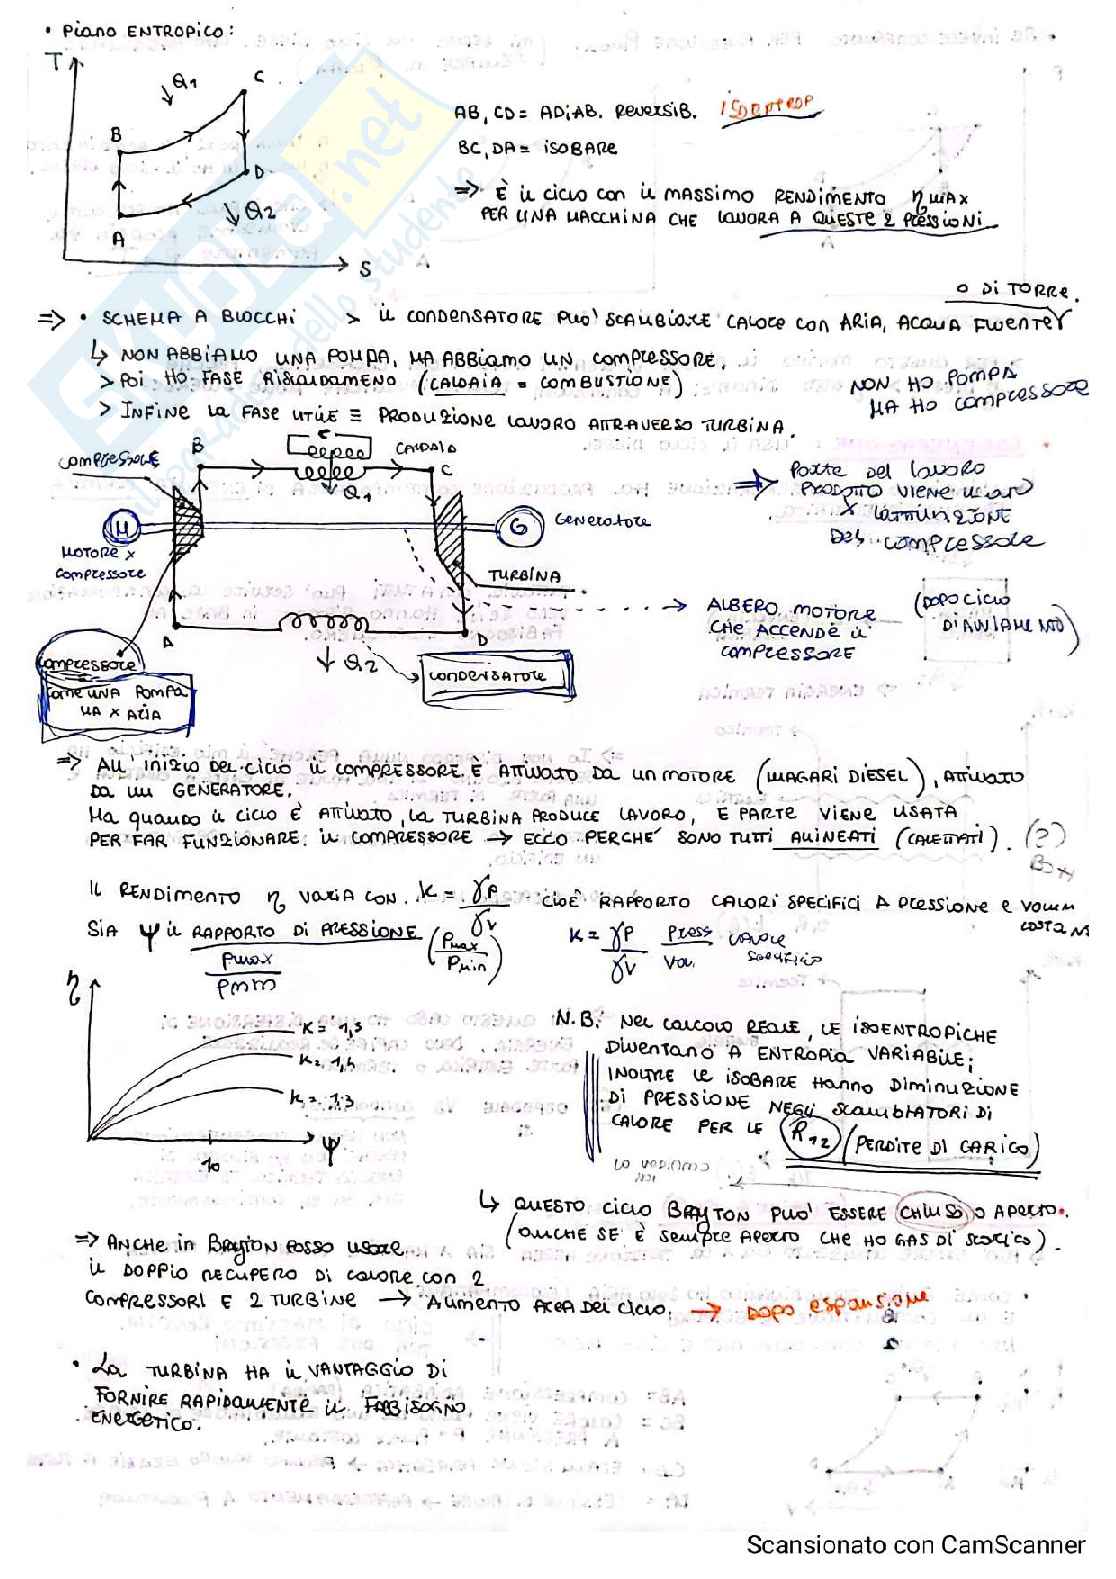 • Piano ENTROPICO:
T
Q1
C
B
D
Q2
A
S
AB, CD = ADIAB. REVERSIB. ISOENTROP
BC, DA = ISOBARE
=> È il ciclo con il MASSIMO RENDIMENTO η MAX
PER UNA MACCHINA CHE LAVORA A QUESTE 2 PRESSIONI
O DI TORRE.
=> • SCHEMA A BLOCCHI > il CONDENSATORE PUO' SCAMBIARE CALORE con ARIA, ACQUA
↳ NON ABBIAMO UNA POMPA, MA ABBIAMO UN COMPRESSORE.
> POI HO FASE RISCALDAMENO (CALDAIA = COMBUSTIONE)
> INFINE LA FASE UTILE ≡ PRODUZIONE LAVORO ATTRAVERSO TURBINA.
NON HO POMPA
MA HO COMPRESSORE
COMPRESSORE
B
CALDAIA
C
Q1
M
G
Generatore
MOTORE x
COMPRESSORE
TURBINA
A
Q2
D
CONDENSATORE
COMPRESSORE
COME UNA POMPA
MA x ARIA
=> PARTE DEL LAVORO
PRODOTTO VIENE USATO
x L'ATTIVAZIONE
DEL COMPRESSORE
ALBERO MOTORE
CHE ACCENDE il
COMPRESSORE
(DOPO CICLO
DI AVVIAMENTO)
=> ALL' INIZIO DEL CICLO il COMPRESSORE È ATTIVATO DA UN MOTORE (MAGARI DIESEL), ATTIVATO
DA UN GENERATORE.
MA QUANDO il CICLO È ATTIVATO, LA TURBINA PRODUCE LAVORO, E PARTE VIENE USATA
PER FAR FUNZIONARE il COMPRESSORE → ECCO PERCHE' SONO TUTTI ALLINEATI (CALETTATI). (?)
BOH
IL RENDIMENTO η VARIA CON K = γP/γV CIOÈ RAPPORTO CALORI SPECIFICI A PRESSIONE E VOLUM
COSTANT
SIA ψ il RAPPORTO DI PRESSIONE (Pmax/Pmin)
Pmax/Pmin
K = γP/γV PRESS/VOL CALORE
SPECIFICO
η
K = 1,5
K = 1,4
K = 1,3
10
ψ
N.B. NEL CALCOLO REALE, LE ISOENTROPICHE
DIVENTANO A ENTROPIA VARIABILE;
INOLTRE LE ISOBARE HANNO DIMINUZIONE
DI PRESSIONE NEGLI SCAMBIATORI DI
CALORE PER LE R12 (PERDITE DI CARICO)
LO VEDIAMO
↳ QUESTO CICLO BRAYTON PUO' ESSERE CHIUSO O APERTO.
(ANCHE SE È SEMPRE APERTO CHE HO GAS DI SCARICO).
=> ANCHE in BRAYTON POSSO USARE
il DOPPIO RECUPERO DI CALORE CON 2
COMPRESSORI E 2 TURBINE → AUMENTO AREA DEL CICLO. → DOPO ESPANSIONE
• LA TURBINA HA il VANTAGGIO DI
FORNIRE RAPIDAMENTE il FABBISOGNO
ENERGETICO.
SKUOLA.net
dello studente
Scansionato con CamScanner